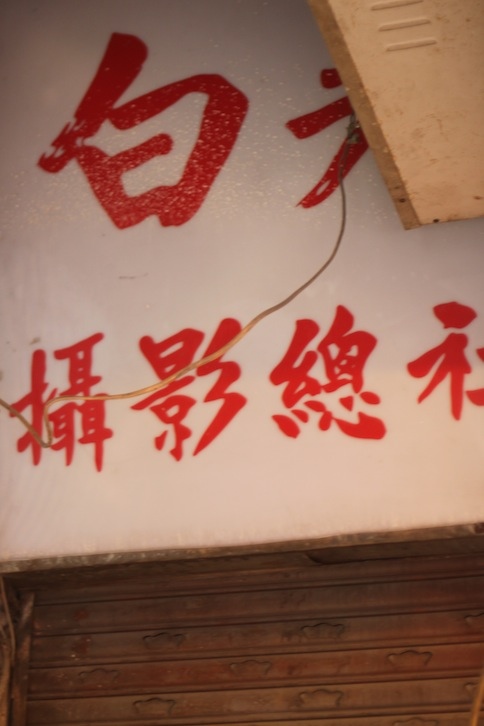 白
攝影總社